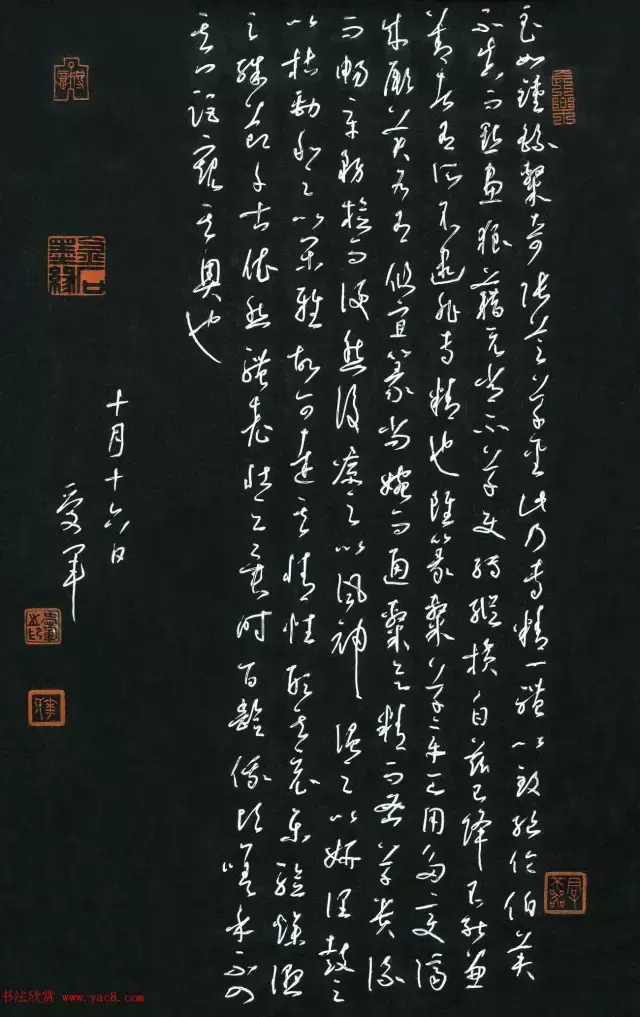 至如鍾繇隸奇張芝草聖此乃專精一體以致絕倫伯英
不真而點畫狼藉元常不草使轉縱橫自茲已降不能兼
善者有所不逮非專精也雖篆隸草章工用多變濟
成厥美各有攸宜篆尚婉而通隸欲精而密草貴流
而暢章務檢而便然後凜之以風神溫之以妍潤鼓之
以枯勁和之以閑雅故可達其情性形其哀樂驗燥濕
之殊節千古依然體老壯之異時百齡俄頃嗟乎不入
其門詎窺其奧也
十月十六日
爱军
金石墨緣
书法欣赏 www.yac8.com